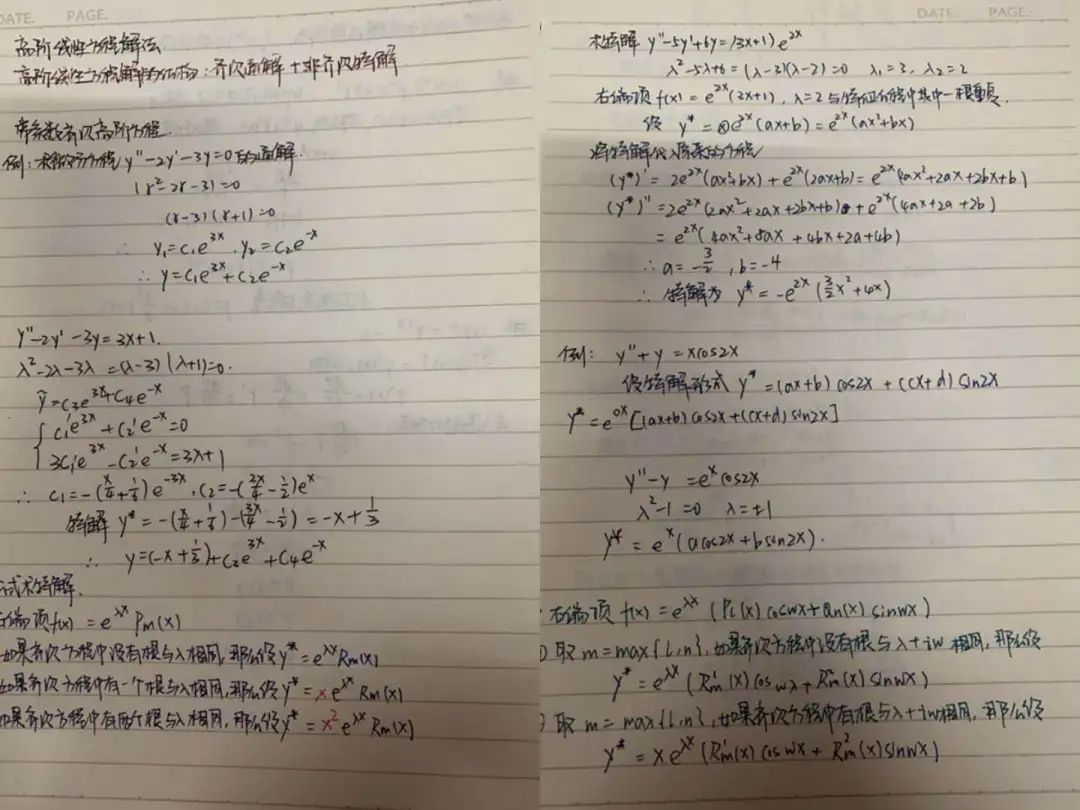 DATE. PAGE.
高阶线性方程解法
高阶线性方程解的结构：齐次通解+非齐次特解
常系数齐次高阶方程.
例：求微分方程 y''-2y'-3y=0的通解.
(r²-2r-3)=0
(r-3)(r+1)=0
∴ y₁=c₁e^{3x}. y₂=c₂e^{-x}
∴ y=c₁e^{3x}+c₂e^{-x}
y''-2y'-3y=3x+1.
λ²-2λ-3λ=(λ-3)(λ+1)=0.
ȳ=c₃e^{3x}+c₄e^{-x}
{ c₁'e^{3x}+c₂'e^{-x}=0
3c₁'e^{3x}-c₂'e^{-x}=3x+1
∴ c₁=-(x/4+1/6)e^{-3x}, c₂=-(3x/4-1/2)e^x
特解 y*=-(x/4+1/6)-(3x/4-1/2)=-x+1/3
∴ y=(-x+1/3)+c₃e^{3x}+c₄e^{-x}
试求特解.
右端项f(x)=e^{λx}Pm(x)
如果齐次方程中没有根与λ相同,那么设y*=e^{λx}Rm(x)
如果齐次方程中有一个根与λ相同,那么设y*=xe^{λx}Rm(x)
如果齐次方程中有两个根与λ相同,那么设y*=x²e^{λx}Rm(x)
DATE PAGE.
求特解 y''-5y'+6y=(3x+1)e^{2x}
λ²-5λ+6=(λ-3)(λ-2)=0 λ₁=3, λ₂=2
右端项 f(x)=e^{2x}(3x+1), λ=2与特征方程中其中一根重复.
设 y*=xe^{2x}(ax+b)=e^{2x}(ax²+bx)
将特解代入原来的方程
(y*)'=2e^{2x}(ax²+bx)+e^{2x}(2ax+b)=e^{2x}(2ax²+2ax+2bx+b)
(y*)''=2e^{2x}(2ax²+2ax+2bx+b)+e^{2x}(4ax+2a+2b)
=e^{2x}(4ax²+8ax+4bx+2a+4b)
∴ a=-3/2, b=-4
∴ 特解为 y*=-e^{2x}(3/2x²+4x)
例: y''+y=xcos2x
设特解形式 y*=(ax+b)cos2x+(cx+d)sin2x
y*=e^{0x}[(ax+b)cos2x+(cx+d)sin2x]
y''-y=e^xcos2x
λ²-1=0 λ=±1
y*=e^x(acos2x+bsin2x).
右端项 f(x)=e^{λx}(Pl(x)coswx+Qn(x)sinwx)
取m=max{l,n},如果齐次方程中没有根与λ+iw相同,那么设
y*=e^{λx}(R¹m(x)coswx+R²m(x)sinwx)
取m=max{l,n},如果齐次方程中有根与λ+iw相同,那么设
y*=xe^{λx}(R¹m(x)coswx+R²m(x)sinwx)